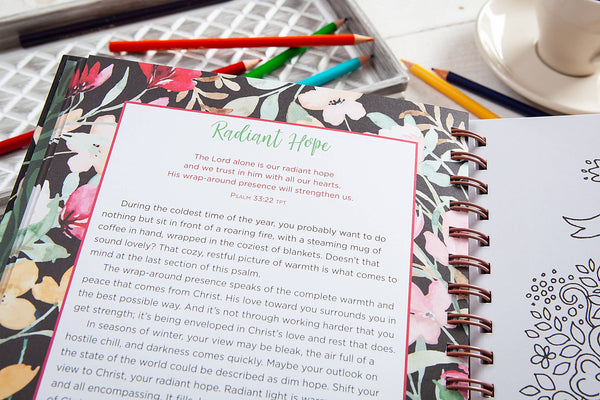 Radiant Hope
The Lord alone is our radiant hope
and we trust in him with all our hearts.
His wrap-around presence will strengthen us.
PSALM 33:22 TPT
During the coldest time of the year, you probably want to do
nothing but sit in front of a roaring fire, with a steaming mug of
coffee in hand, wrapped in the coziest of blankets. Doesn't that
sound lovely? That cozy, restful picture of warmth is what comes to
mind at the last section of this psalm.
The wrap-around presence speaks of the complete warmth and
peace that comes from Christ. His love toward you surrounds you in
the best possible way. And it's not through working harder that you
get strength; it's being enveloped in Christ's love and rest that does.
In seasons of winter, your view may be bleak, the air full of a
hostile chill, and darkness comes quickly. Maybe your outlook on
the state of the world could be described as dim hope. Shift your
view to Christ, your radiant hope. Radiant light is warm
and all encompassing. It fills
of Ch